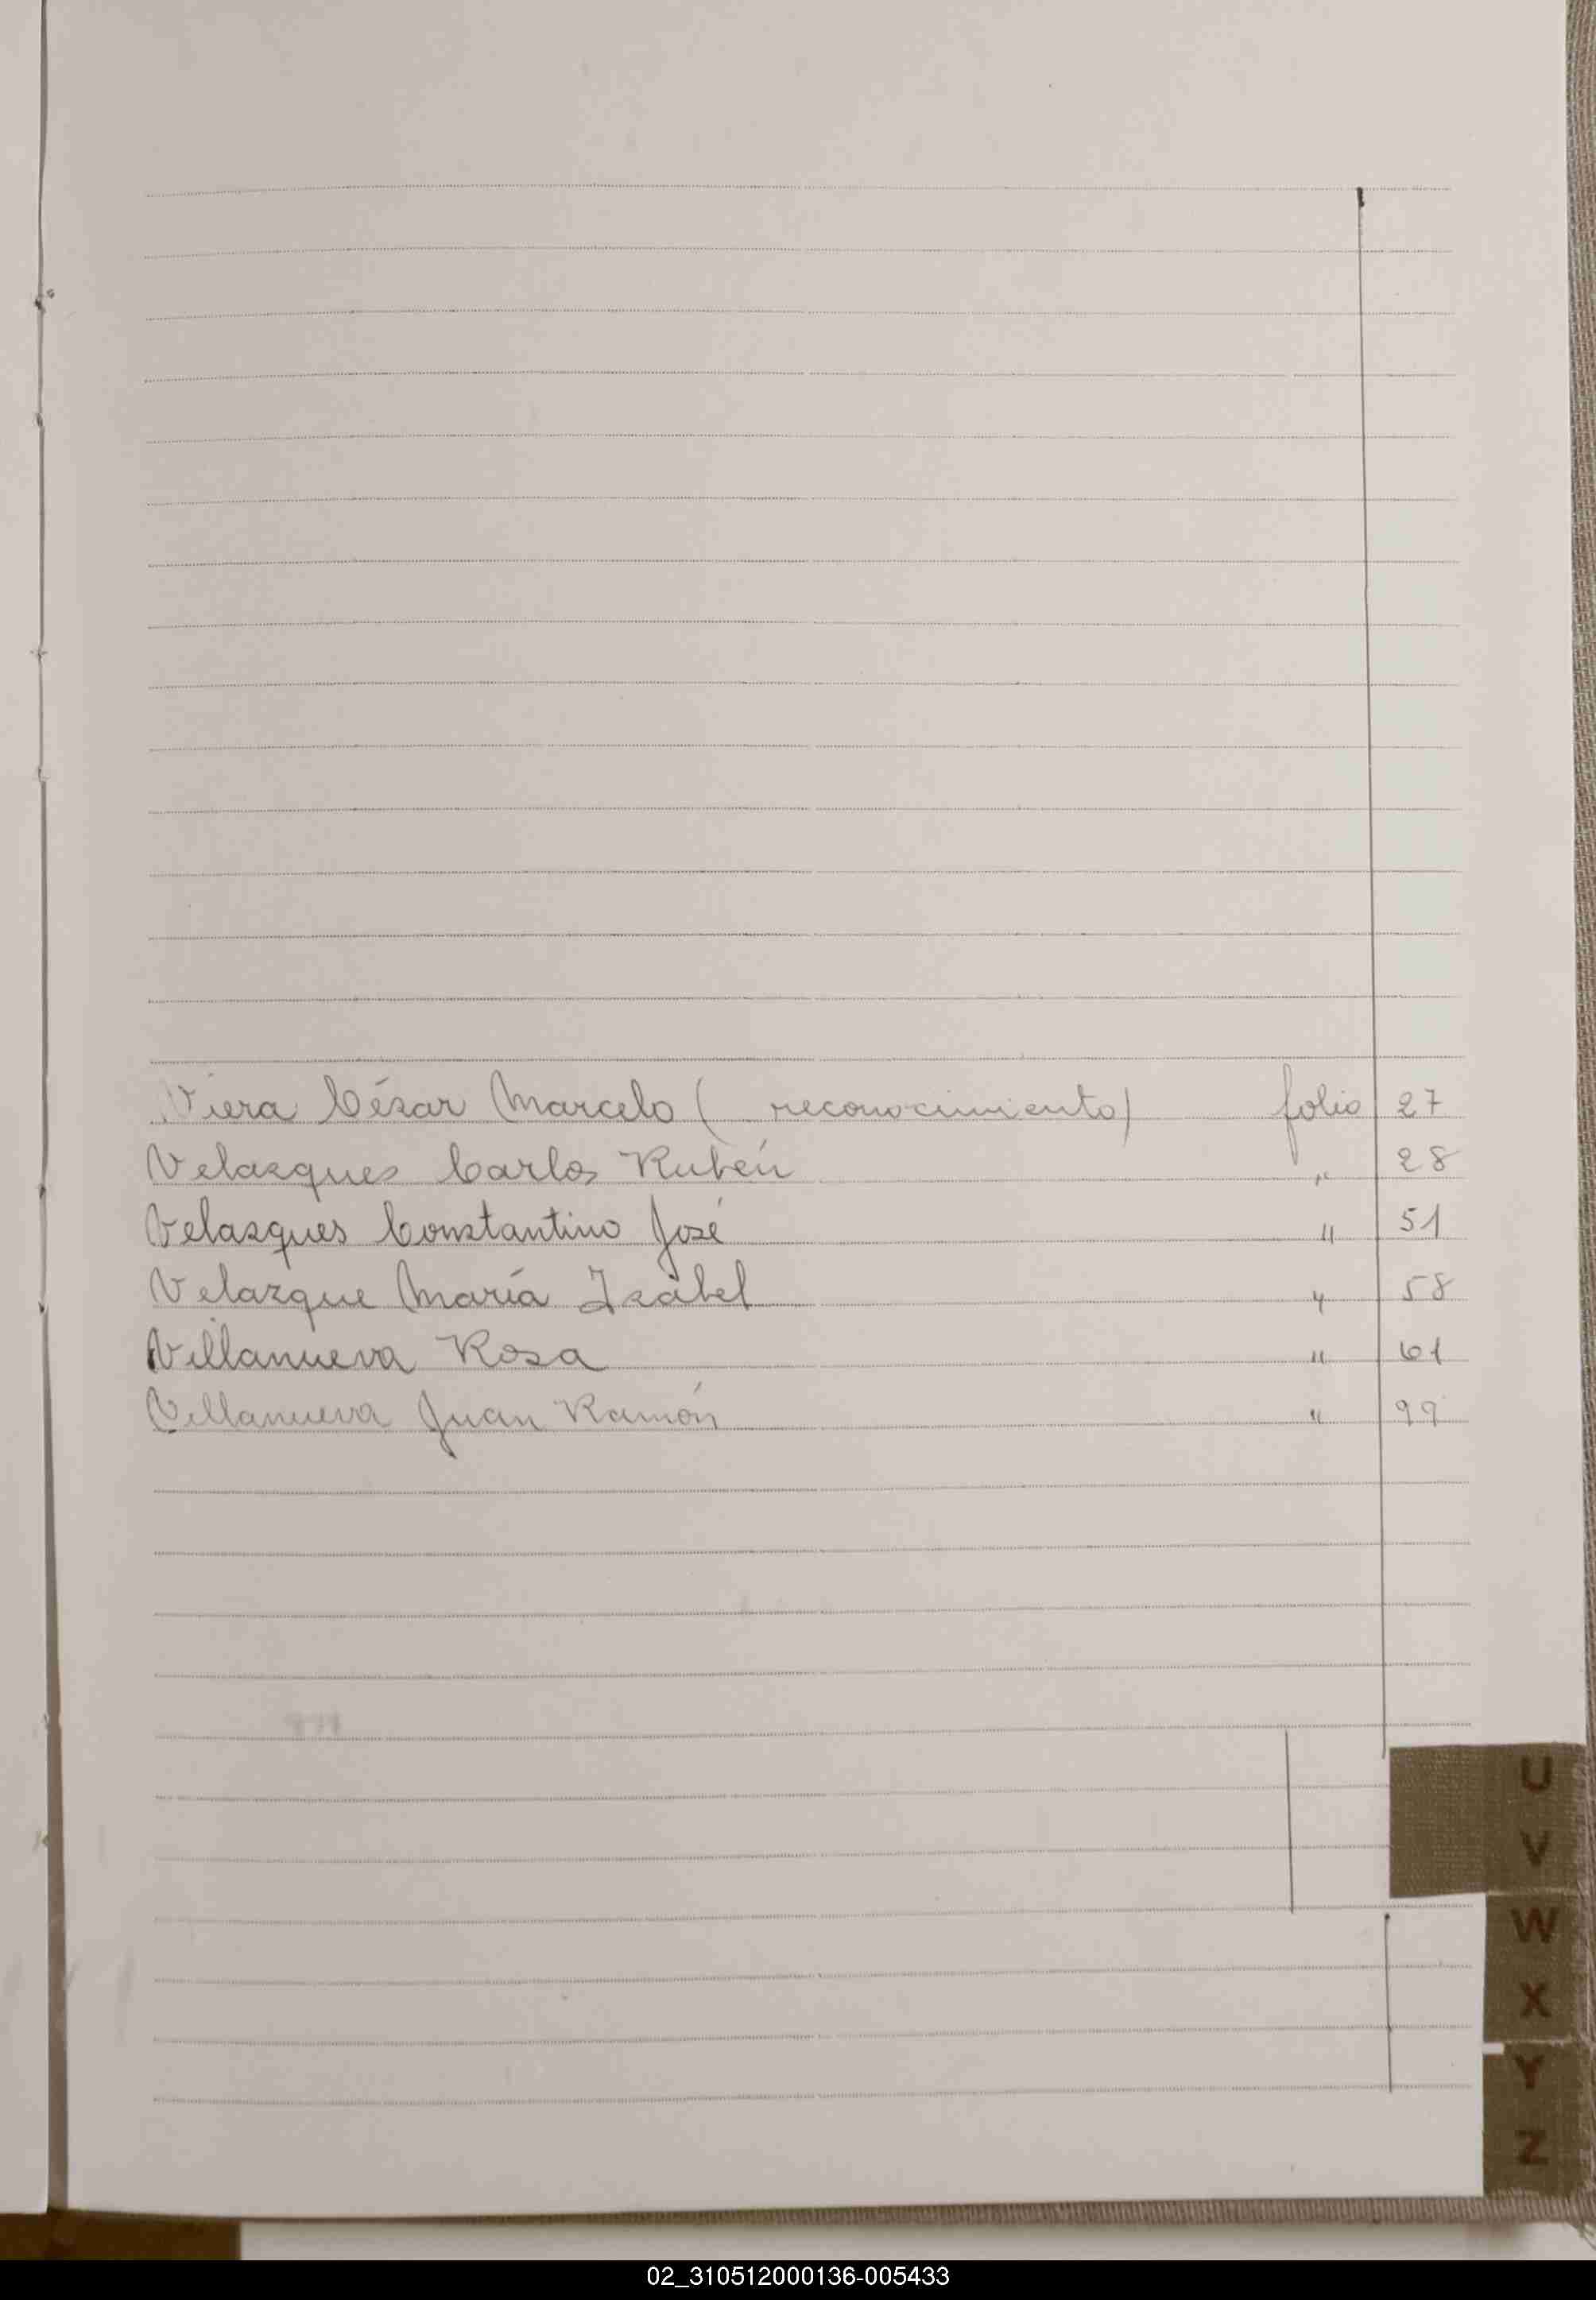 Viera César Marcelo ( reconocimiento) folio 27
Velasques Carlos Rubén " 28
Velasques Constantino José " 51
Velazque María Isabel " 58
Villanueva Rosa " 61
Villanueva Juan Ramón " 99
U
V
W
X
Y
Z
02_310512000136-005433